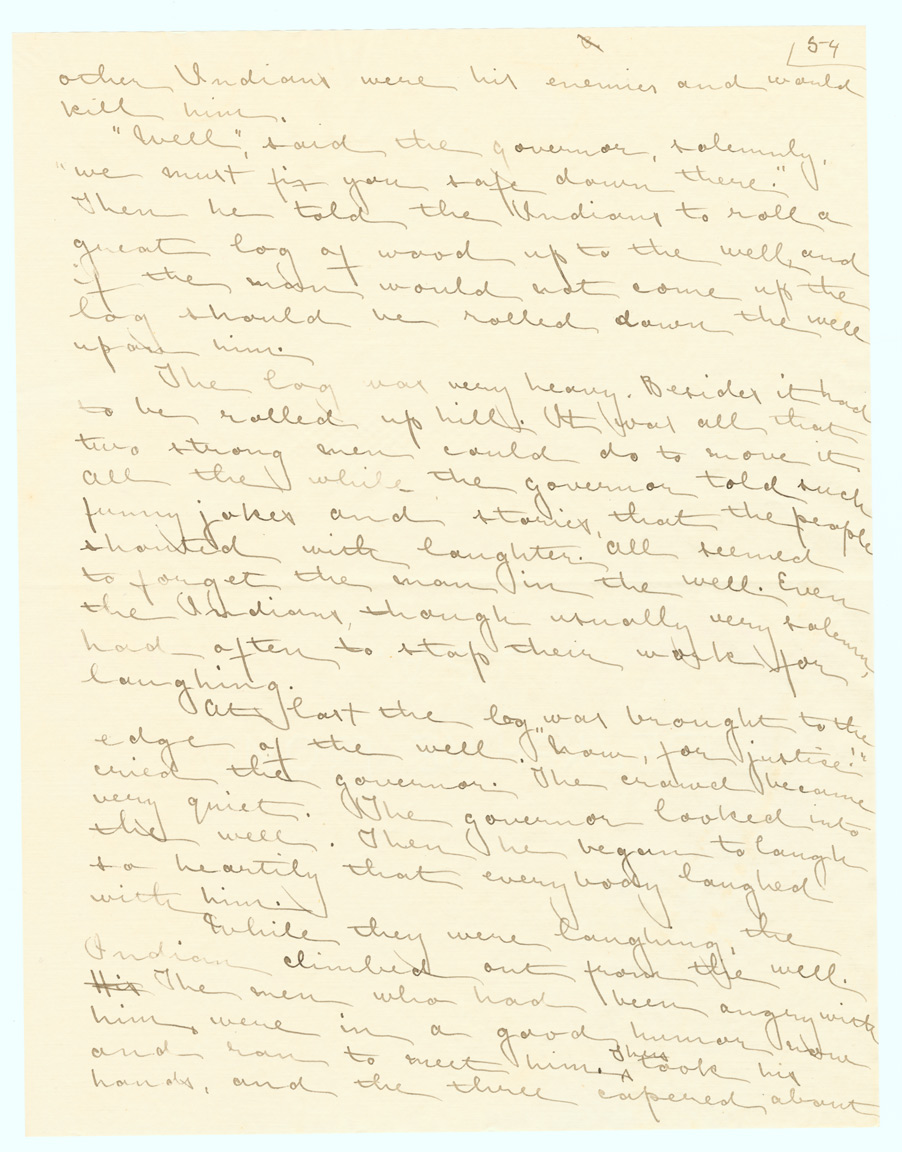 54
other Indians were his enemies and would
kill him.
"Well", said the governor, solemnly,
"we must fix you safe down there."
Then he told the Indians to roll a
great log of wood up to the well, and
if the man would not come up the
log should be rolled down the well
upon him.
The log was very heavy. Besides it had
to be rolled up hill. It was all that
two strong men could do to move it
all the while the governor told such
funny jokes and stories, that the people
shouted with laughter. All seemed
to forget the man in the well. Even
the Indians, though usually very solemn,
had often to stop their work for
laughing.
At last the log was brought to the
edge of the well. "Now, for justice!"
cried the governor. The crowd became
very quiet. The governor looked into
the well. Then he began to laugh
so heartily that everybody laughed
with him.
While they were laughing, the
Indian climbed out from the well.
His The men who had been angry with
him, were in a good humor now
and ran to meet him. They took his
hands, and the three capered about